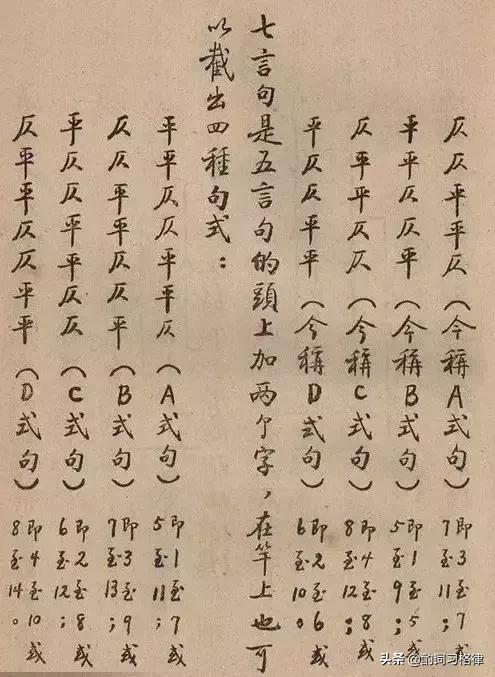 仄仄平平仄（今稱A式句）即3至7或7至11；
平平仄仄平（今稱B式句）即1至5或5至9；
仄平平仄仄（今稱C式句）即4至8或8至12；
平仄仄平平（今稱D式句）即2至6或6至10。
七言句是五言句的頭上加两个字，在竿上也可
以截出四種句式：
平平仄仄平平仄（A式句）即1至7或5至11；
仄仄平平仄仄平（B式句）即3至9或7至13；
平仄仄平平仄仄（C式句）即2至8或6至12；
仄平平仄仄平平（D式句）即4至10或8至14。
头条 @酌词习格律